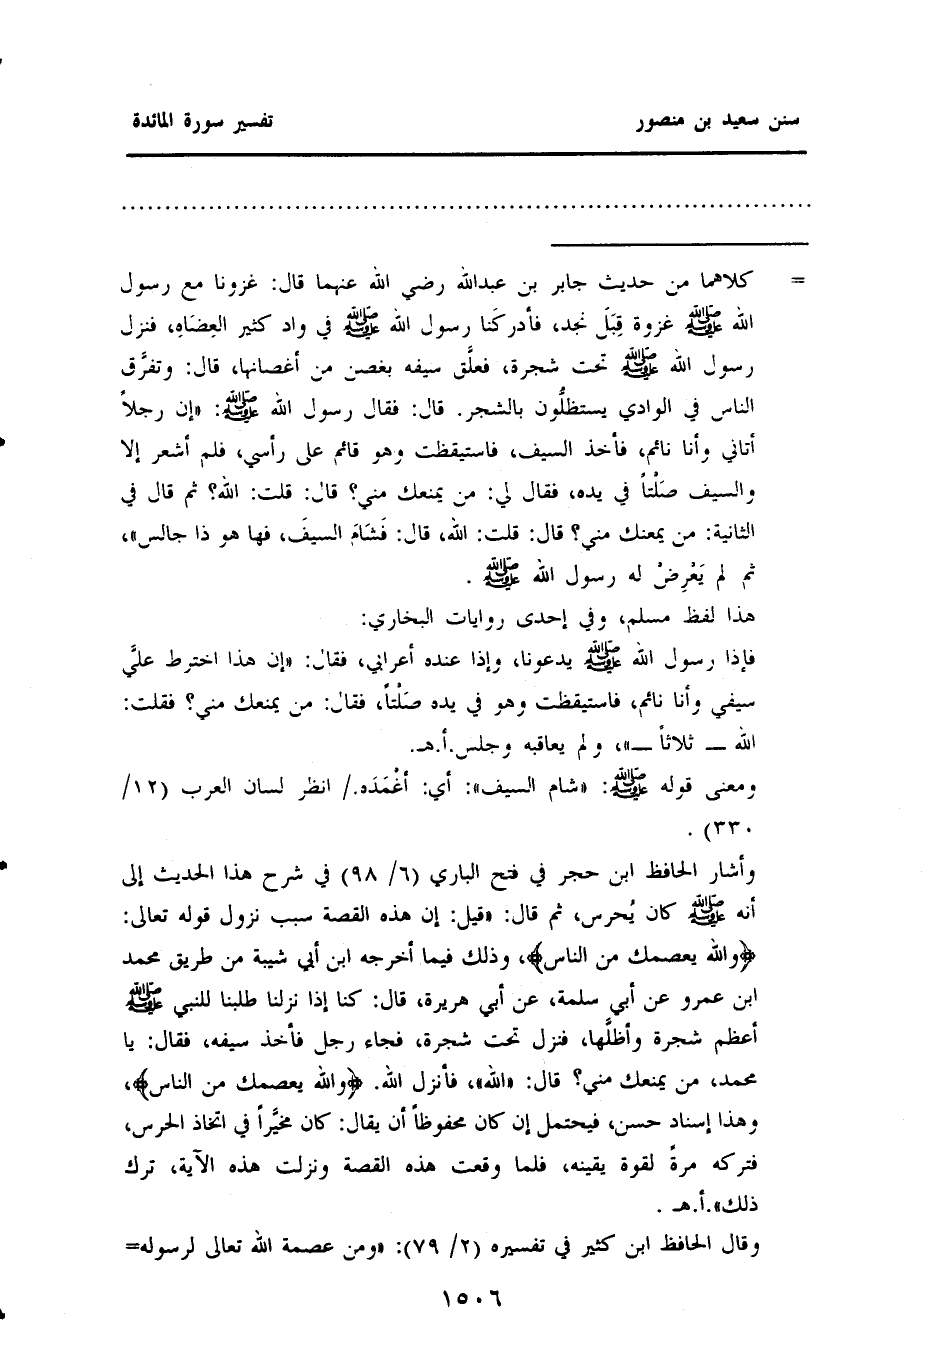 سنن سعيد بن منصور تفسير سورة المائدة
= كلاهما من حديث جابر بن عبدالله رضي الله عنهما قال: غزونا مع رسول
الله ﷺ غزوة قِبَلَ نجد، فأدركَنا رسول الله ﷺ في واد كثير العِضَاهِ، فنزل
رسول الله ﷺ تحت شجرة، فعلَّق سيفه بغصن من أغصانها، قال: وتفرَّق
الناس في الوادي يستظلُّون بالشجر. قال: فقال رسول الله ﷺ: «إن رجلاً
أتاني وأنا نائم، فأخذ السيف، فاستيقظت وهو قائم على رأسي، فلم أشعر إلا
والسيف صَلْتاً في يده، فقال لي: من يمنعك مني؟ قال: قلت: الله؟ ثم قال في
الثانية: من يمعنك مني؟ قال: قلت: الله، قال: فَشَامَ السيفَ، فها هو ذا جالس»،
ثم لم يَعْرِضْ له رسول الله ﷺ .
هذا لفظ مسلم، وفي إحدى روايات البخاري:
فإذا رسول الله ﷺ يدعونا، وإذا عنده أعرابي، فقال: «إن هذا اخترط عليَّ
سيفي وأنا نائم، فاستيقظت وهو في يده صَلْتاً، فقال: من يمنعك مني؟ فقلت:
الله ــ ثلاثاً ــ»، و لم يعاقبه وجلس.أ.هـ.
ومعنى قوله ﷺ: «شام السيف»: أي: أغْمَدَه./ انظر لسان العرب (١٢/
٣٣٠) .
وأشار الحافظ ابن حجر في فتح الباري (٦/ ٩٨) في شرح هذا الحديث إلى
أنه ﷺ كان يُحرس، ثم قال: «قيل: إن هذه القصة سبب نزول قوله تعالى:
﴿والله يعصمك من الناس﴾، وذلك فيما أخرجه ابن أبي شيبة من طريق محمد
ابن عمرو عن أبي سلمة، عن أبي هريرة، قال: كنا إذا نزلنا طلبنا للنبي ﷺ
أعظم شجرة وأظلَّها، فنزل تحت شجرة، فجاء رجل فأخذ سيفه، فقال: يا
محمد، من يمنعك مني؟ قال: «الله»، فأنزل الله. ﴿والله يعصمك من الناس﴾،
وهذا إسناد حسن، فيحتمل إن كان محفوظاً أن يقال: كان مخيَّراً في اتخاذ الحرس،
فتركه مرةً لقوة يقينه، فلما وقعت هذه القصة ونزلت هذه الآية، ترك
ذلك».أ.هـ .
وقال الحافظ ابن كثير في تفسيره (٢/ ٧٩): «ومن عصمة الله تعالى لرسوله=
١٥٠٦